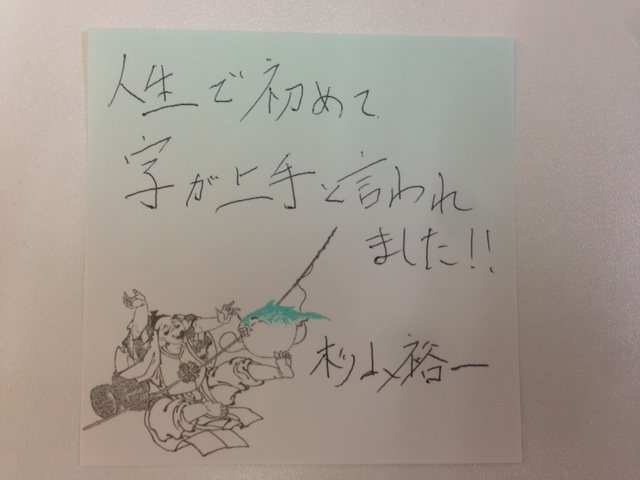 人生で初めて
字が上手と言われ
ました!!
杉山裕一